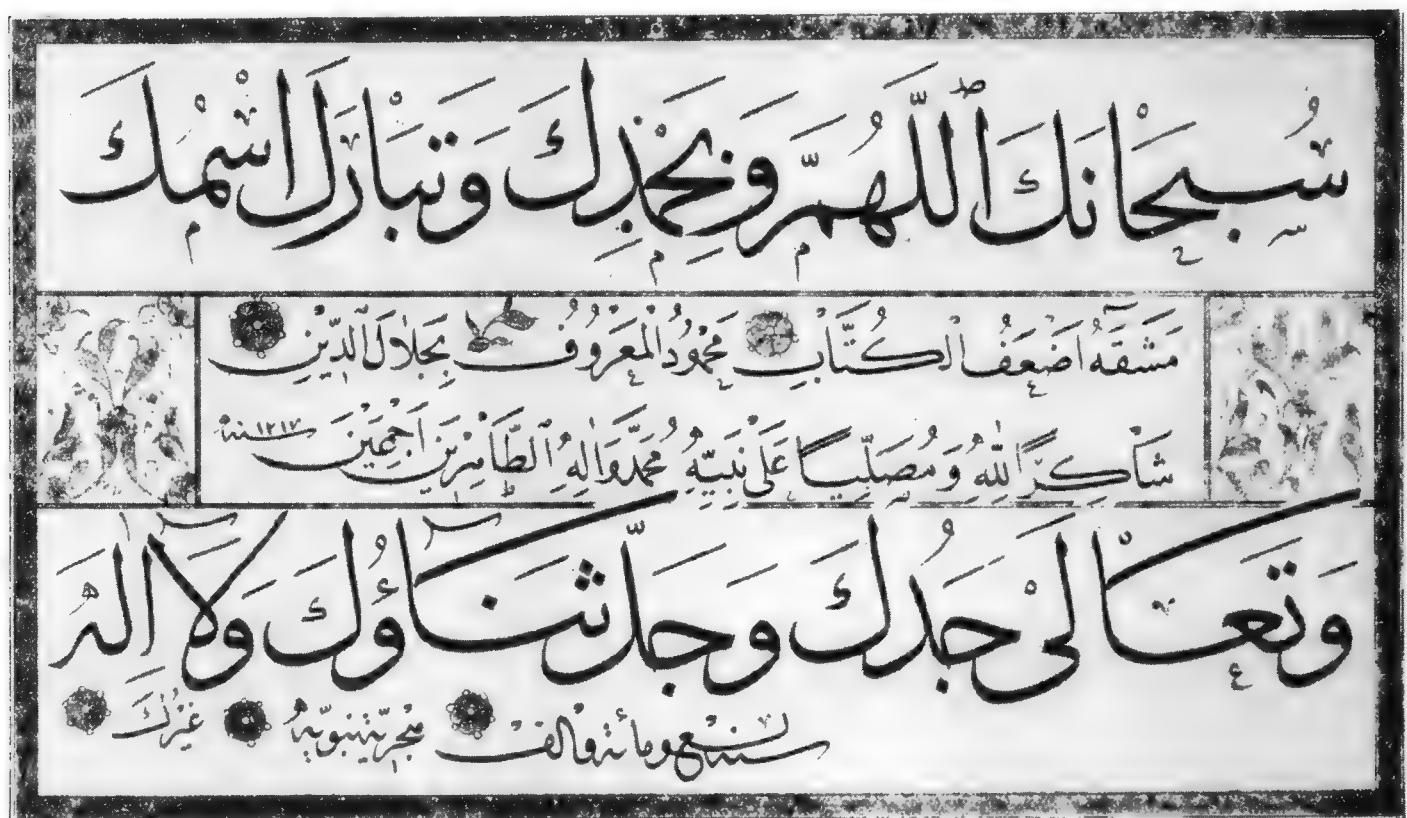 سُبْحَانَكَ ٱللّٰهُمَّ وَبِحَمْدِكَ وَتَبَارَكَ اسْمُكَ
مَشَقَهُ اَضْعَفُ الْكُتَّابِ مَحْمُودُ الْمَعْرُوفُ بِجَلَالِ ٱلدِّينِ
شَاكِرًا لِلّٰهِ وَمُصَلِّيًا عَلٰى نَبِيِّهِ مُحَمَّدٍ وَاٰلِهِ ٱلطَّاهِرِينَ اَجْمَعِينَ سنة ١٢١٧
وَتَعَالٰى جَدُّكَ وَجَلَّ ثَنَاؤُكَ وَلَا اِلٰهَ
غَيْرُكَ هجرية نبوية سنة ومائة والف